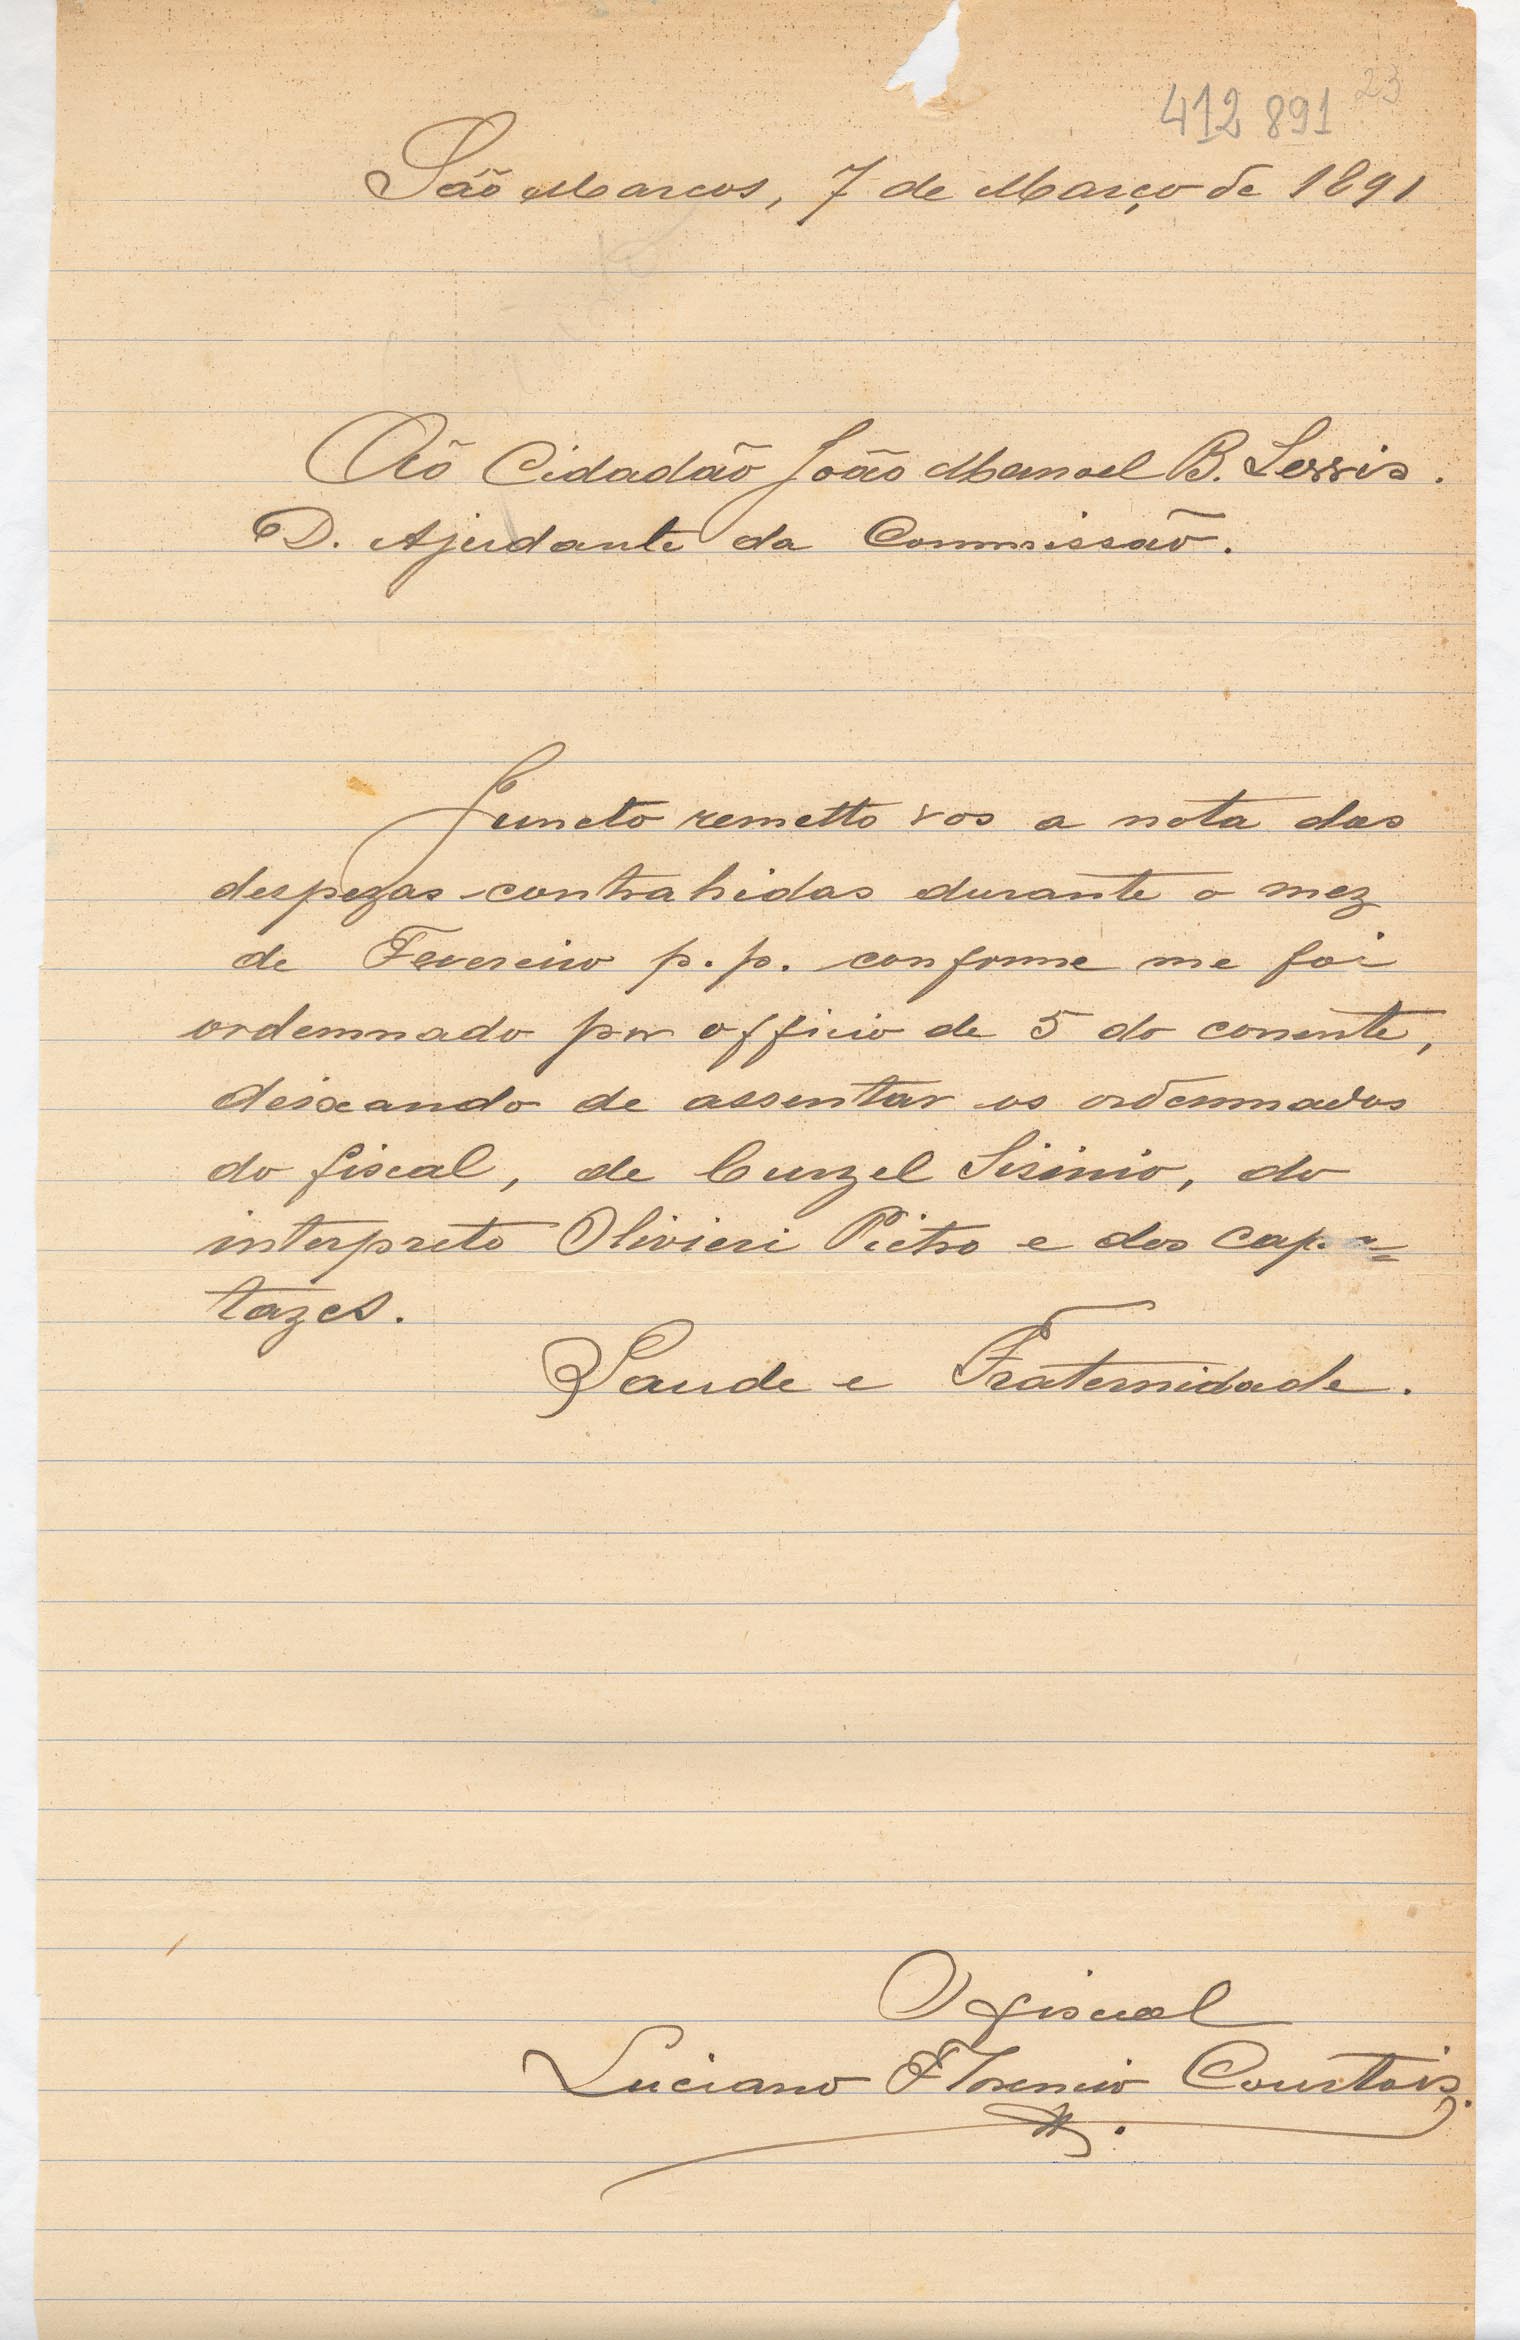 412 891 23
São Marcos, 7 de Março de 1891
Aõ Cidadão João Manoel B. Lerris.
D. Ajudante da Commissão.
Juncto remetto vos a nota das
despezas contrahidas durante o mez
de Fevereiro p.p. conforme me foi
ordemnado por officio de 5 do corrente,
deixando de assentar os ordemnados
do fiscal, de Curzel Sisinio, do
interpreto Olivieri Pietro e dos capa=
tazes.
Saude e Fraternidade.
O fiscal
Luciano Florencio Courtois.